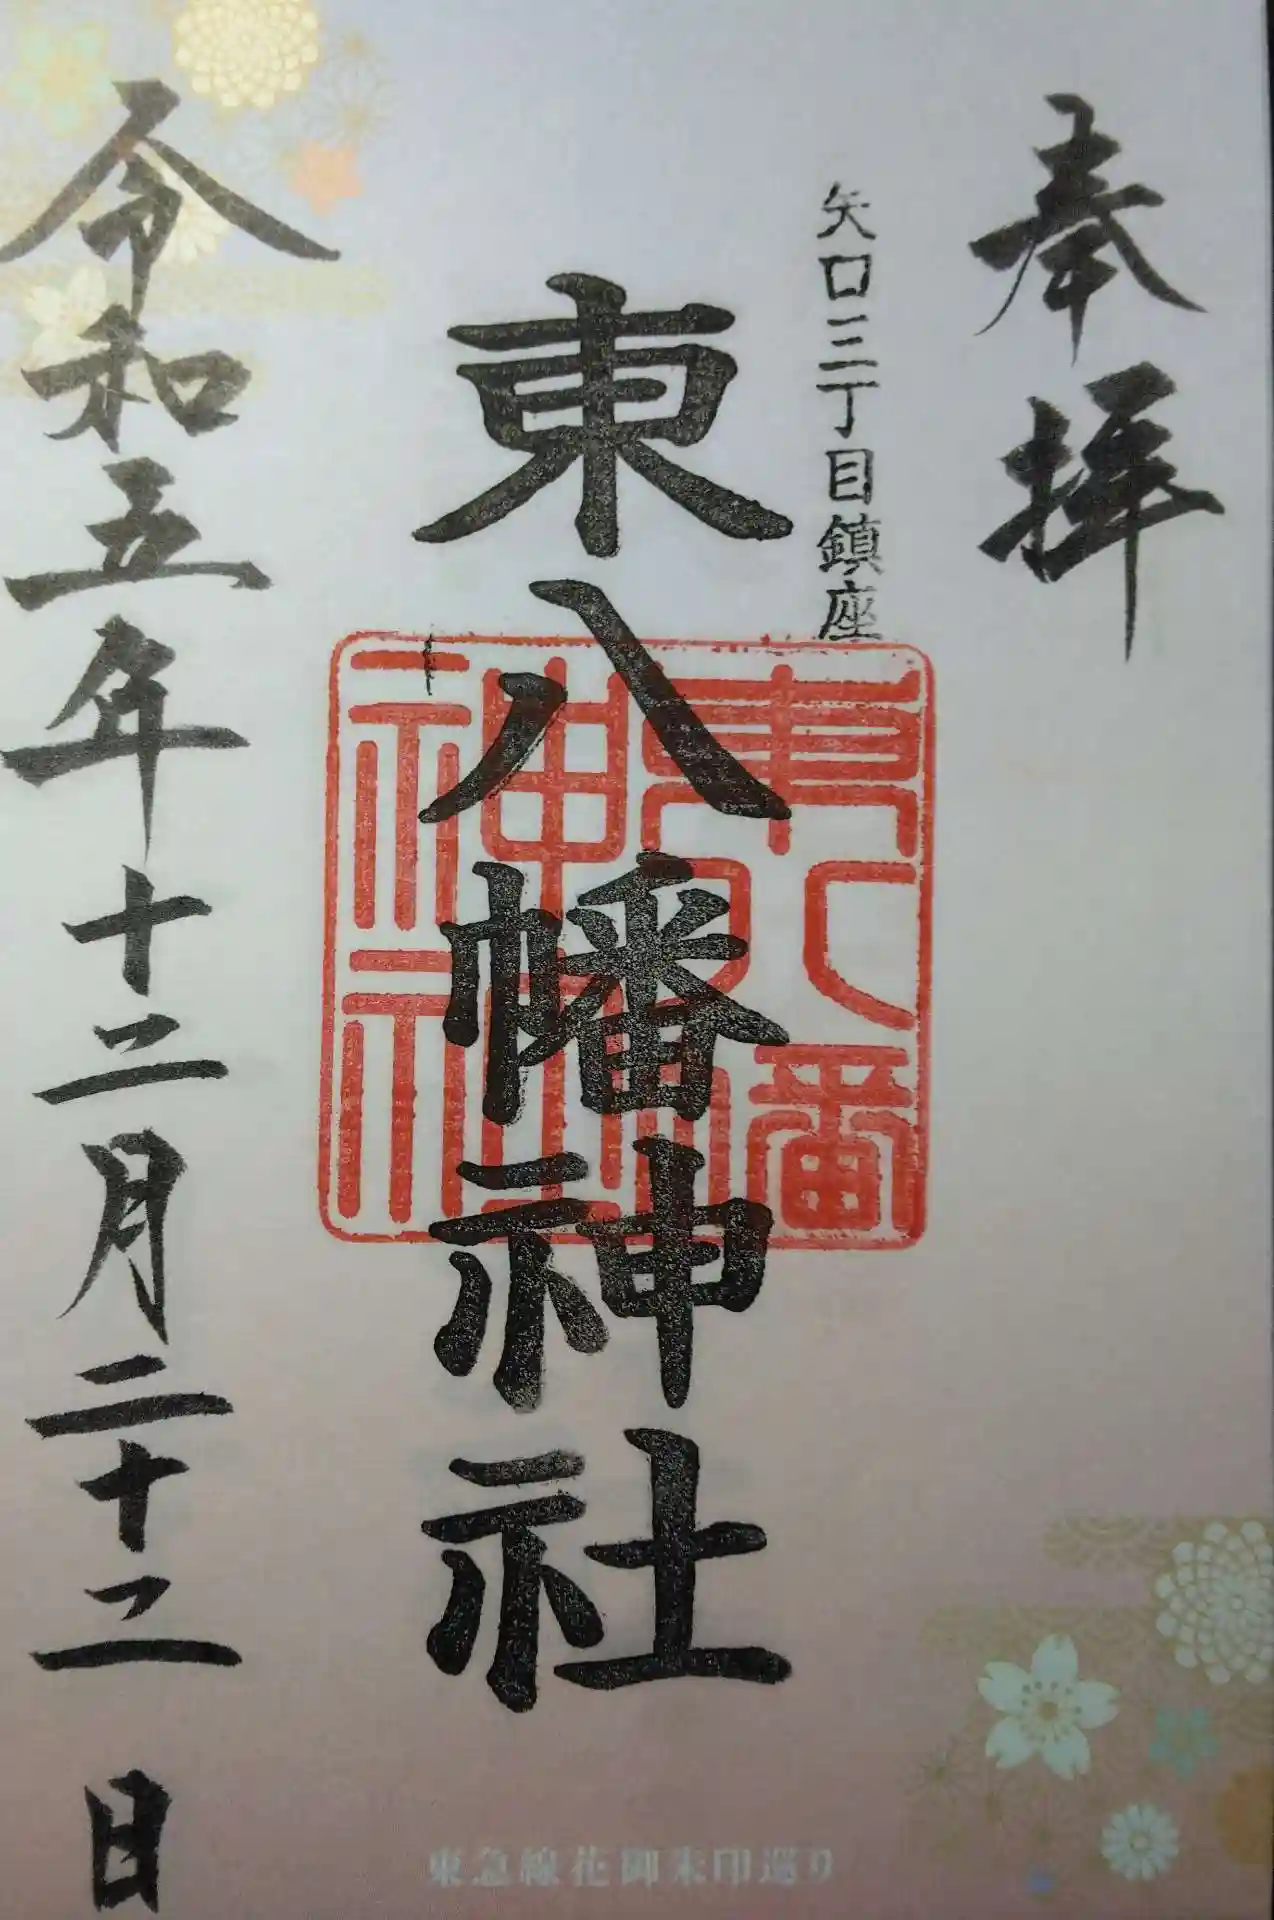 奉拝
矢口三丁目鎮座
東八幡神社
東八幡
神社
令和五年十二月二十二日
東急線花御朱印巡り